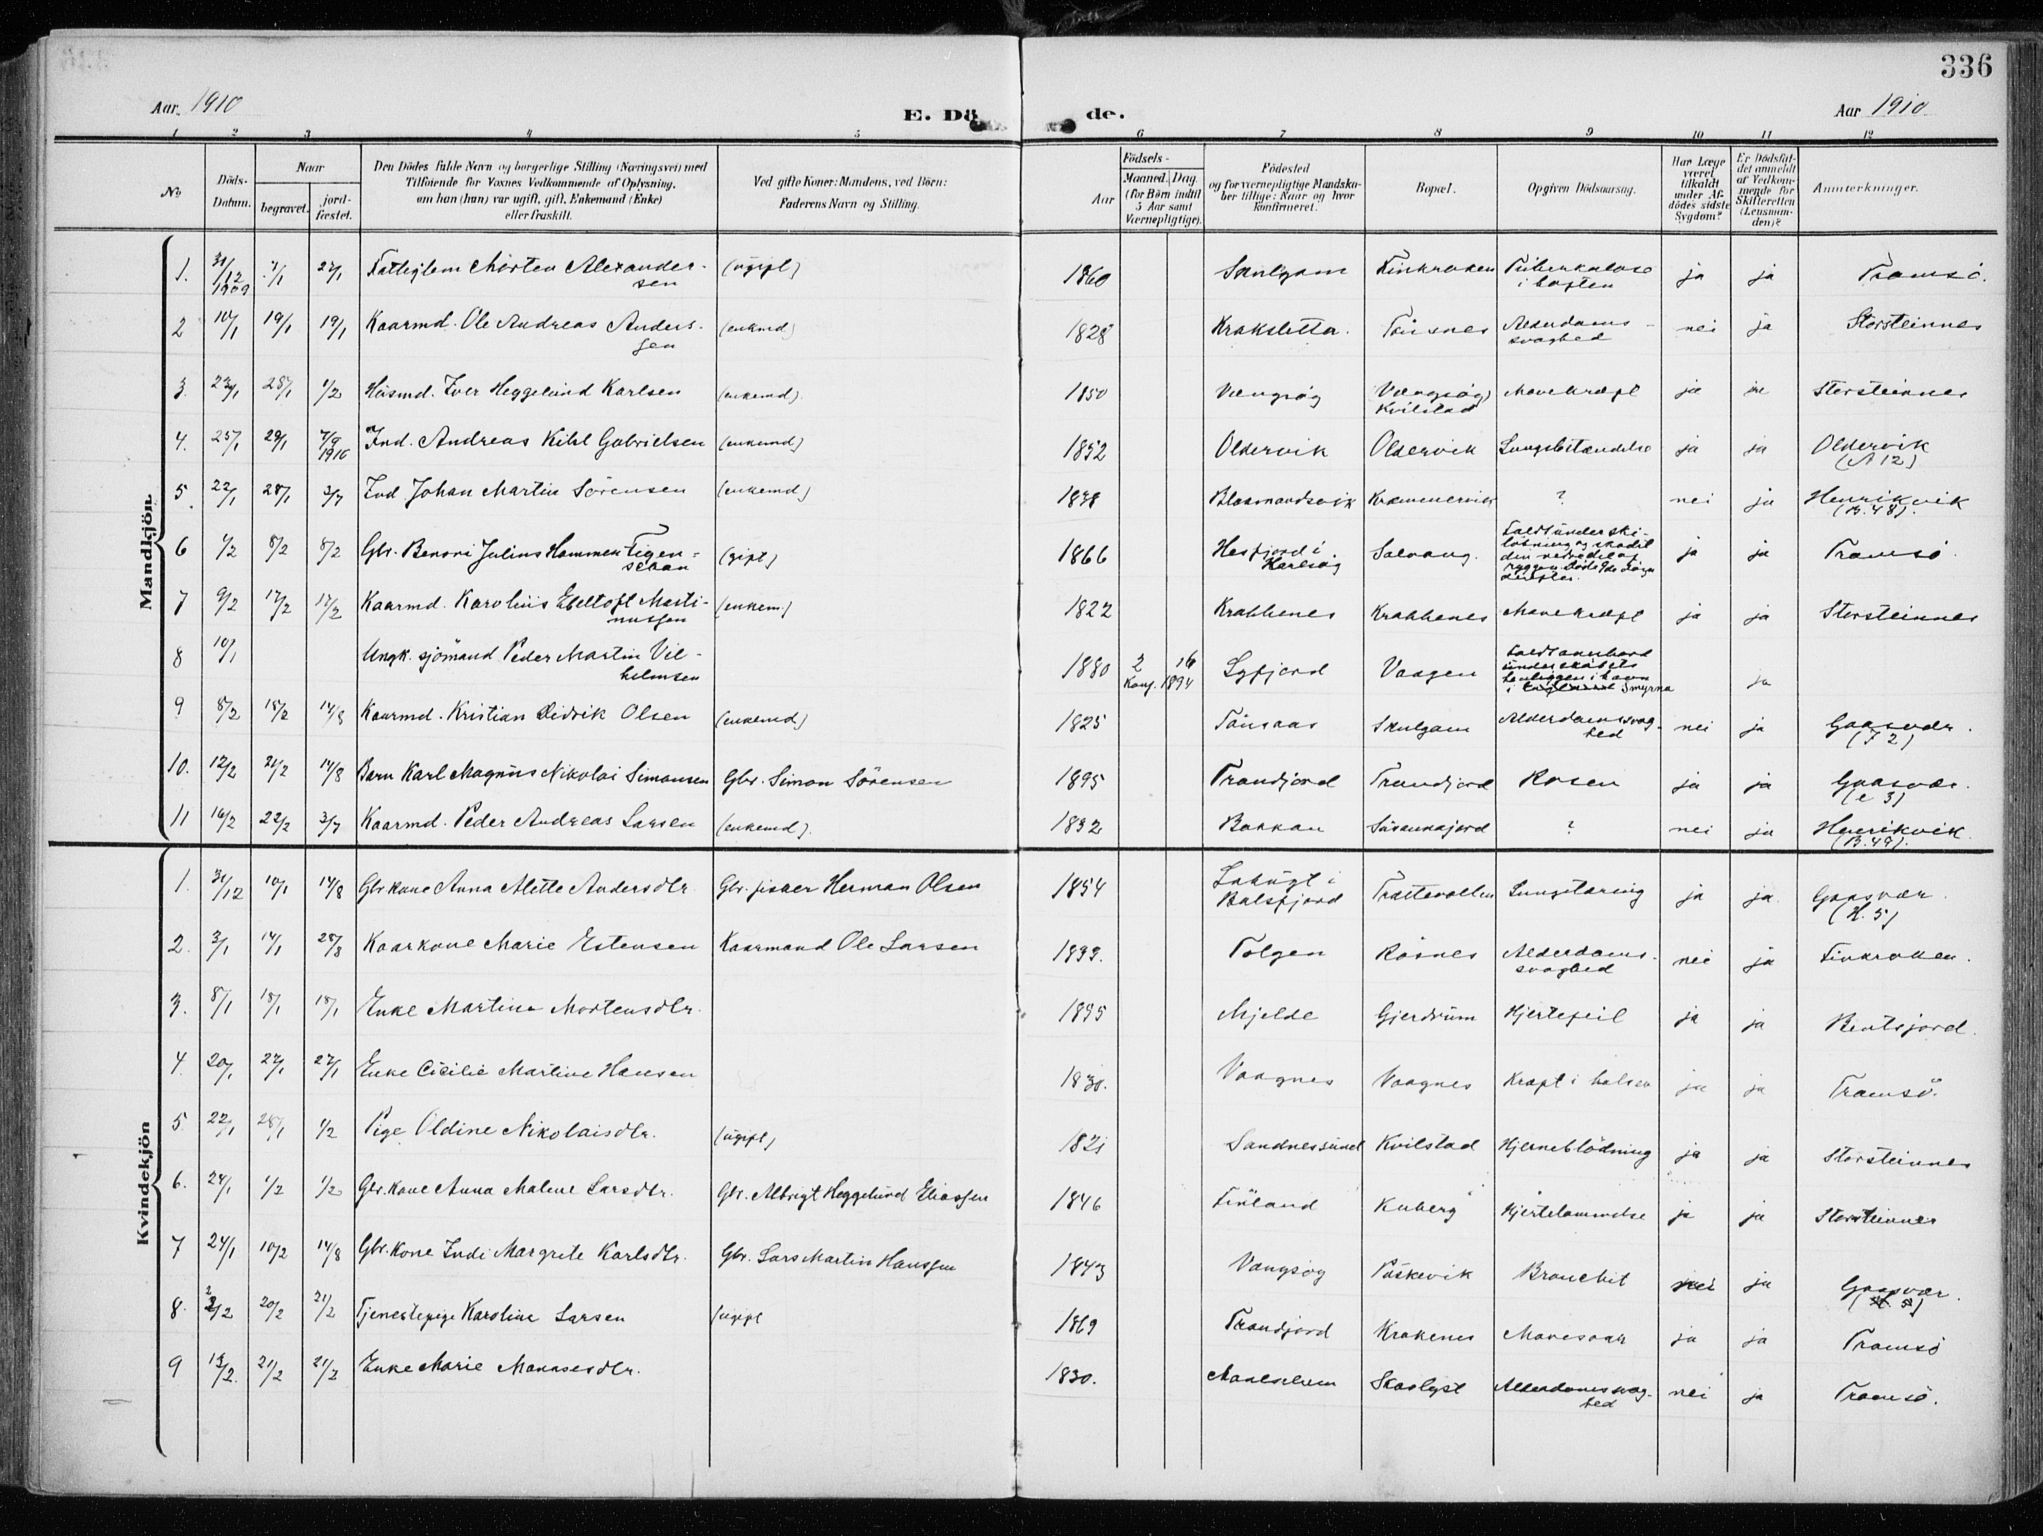 336
Aar 1910
E. Dö
de.
Aar 1910
1 2 3 4 5 6 7 8 9 10 11 12
No
Döds-
Datum.
Naar
begravet.
jord-
fæstet.
Den Dödes fulde Navn og borgerlige Stilling (Næringsvei) med
Tilföiende for Voxnes Vedkommende af Oplysning,
om han (hun) var ugift, gift, Enkemand (Enke)
eller fraskilt.
Ved gifte Koner: Mandens, ved Börn:
Faderens Navn og Stilling.
Födsels-
Aar
Maaned. Dag.
(for Börn indtil
5 Aar samt
Værnepligtige).
Födested
og for værnepligtige Mandska-
ber tillige: Naar og hvor
konfirmeret.
Bopæl.
Opgiven Dödsaarsag.
Har Læge
været
tilkaldt
under Af-
dödes sidste
Sygdom?
Er Dödsfal-
det anmeldt
af Vedkom-
mende for
Skifteretten
(Lensman-
den)?
Anmærkninger.
Mandkjön
1. 31/12 1909 7/1 27/1 Fattiglem Morten Alexander- (ugift) 1860 Skulgam Finkroken Tuberkulose ja ja Tromsö.
sen i hoften
2 10/1 19/1 19/1 Kaarmd. Ole Andreas Anders- (enkmd) 1828 Kraksletta. Tönsnes Alderdoms- nei ja Storsteinnes
sen svaghed
3. 23/1 28/1 1/2 Husmd. Iver Heggelund Karlsen (enkemd). 1850 Vængsöy Vængsöy, Mavekræft ja ja Storsteinnes
Kvilstad
4. 25/1 29/1 7/9 1910 Ind. Andreas Kihl Gabrielsen (enkemd) 1852 Oldervik Oldervik Lungebetændelse ja ja Oldervik
(A 12)
5. 22/1 28/1 3/7 Ind Johan Martin Sörensen (enkemd) 1838 Blaamandsvik Kræmmervik ? nei ja Henrikvik
(B. 48).
6 1/2 8/2 8/2 Gbr. Benoni Julius Hammer Figen- (gift) 1866 Hesfjord i Solvang. ja ja Tromsö.
schau Karlsöy
7 9/2 17/2 17/2 Kaarmd. Karolius Ebeltoft Marti- (enkem.) 1822 Krabbenes Krabbenes Mavekræft ja ja Storsteinnes
nussen
8 10/1 Ungk. sjömand Peder Martin Vil- 1880 2 16 Lyfjord Vaagen Faldt overbord ja
helmsen Konf. 1894 under skibets
henliggen i havn
i England Smyrna
9 8/2 15/2 14/8 Kaarmd. Kristian Didrik Olsen (enkemd) 1825 Tönsaas Skulgam Alderdomssvag- nei ja Gaasvær.
hed (F 2)
10. 12/2 21/2 14/8 Barn Karl Magnus Nikolai Simonsen Gbr. Simon Sörensen 1895 Trondjord Trondjord Rosen ja ja Gaasvær.
(e 3)
11 16/2 22/2 3/7 Kaarmd. Peder Andreas Larsen (enkemd). 1832 Bakkan ? nei ja Henrikvik.
(B. 49).
Kvindekjön
1. 31/12 10/1 14/8 Gbr kone Anna Mette Andersdtr. Gbr. fisker Herman Olsen 1854 i Lungetæring ja ja. Gaasvær.
Balsfjord (H. 5)
2. 3/1 14/1 28/8 Kaarkone Marie Estensen Kaarmand Ole Larsen 1833. Tolgen Alderdoms- nei ja Finkroken.
svaghed
3. 8/1 18/1 18/1 Enke Martine Mortensdtr. Mjelde Gjerdrum Hjertefeil ja ja Bentsjord.
4. 20/1 27/1 27/1 Enke Cicilie Martine Hansen 1830. Vaagnes Vaagnes Kræft i halsen ja ja Tromsö.
5 22/1 28/1 1/2 Pige Oldine Nikolaisdtr. (ugift) 1821 Sandnessund Kvilstad Hjerneblödning ja ja Storsteinnes
6. 24/1 1/2 1/2 Gbr. kone Anna Malene Larsdtr. Gbr. Albrigt Heggelund Eliassen 1846 Finland Kuberg Hjertelammelse ja ja Storsteinnes
7 24/1 10/2 14/8 Gbr. kone Indi Margrete Karlsdtr. Gbr. Lars Martin Hanssen 1843 Vangsöy Påskevik Bronchit nei ja Gaasvær.
8. 2/2 20/2 21/2 Tjenestepige Karoline Larsen (ugift 1869 Trondjord Krokenes Mavesaar ja ja Tromsö
9 13/2. 21/2 21/2 Enke Marie Manasesdtr. 1830. Skoglyst Alderdomssvag- nei ja Tromsö.
hed